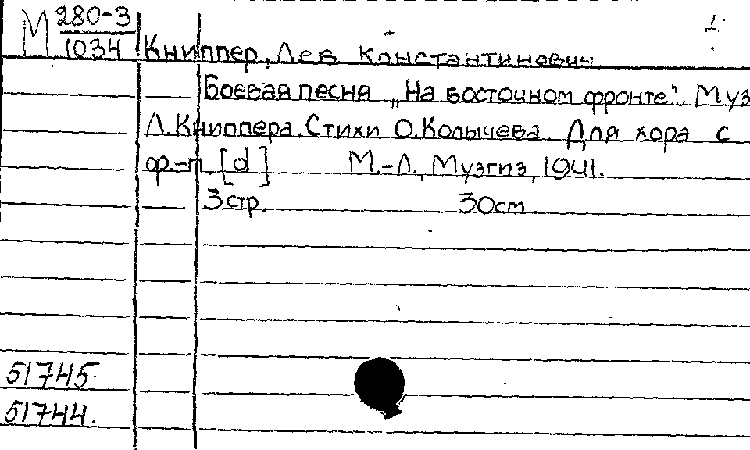 М 280-3
1034 Книппер, Лев Константинович
Боевая песня „На восточном фронте". Муз
Л.Книппера. Стихи О.Колычева. Для хора с
ф.-п. [d] М.-Л., Музгиз, 1941.
3 стр. 30 см
51745
51744.